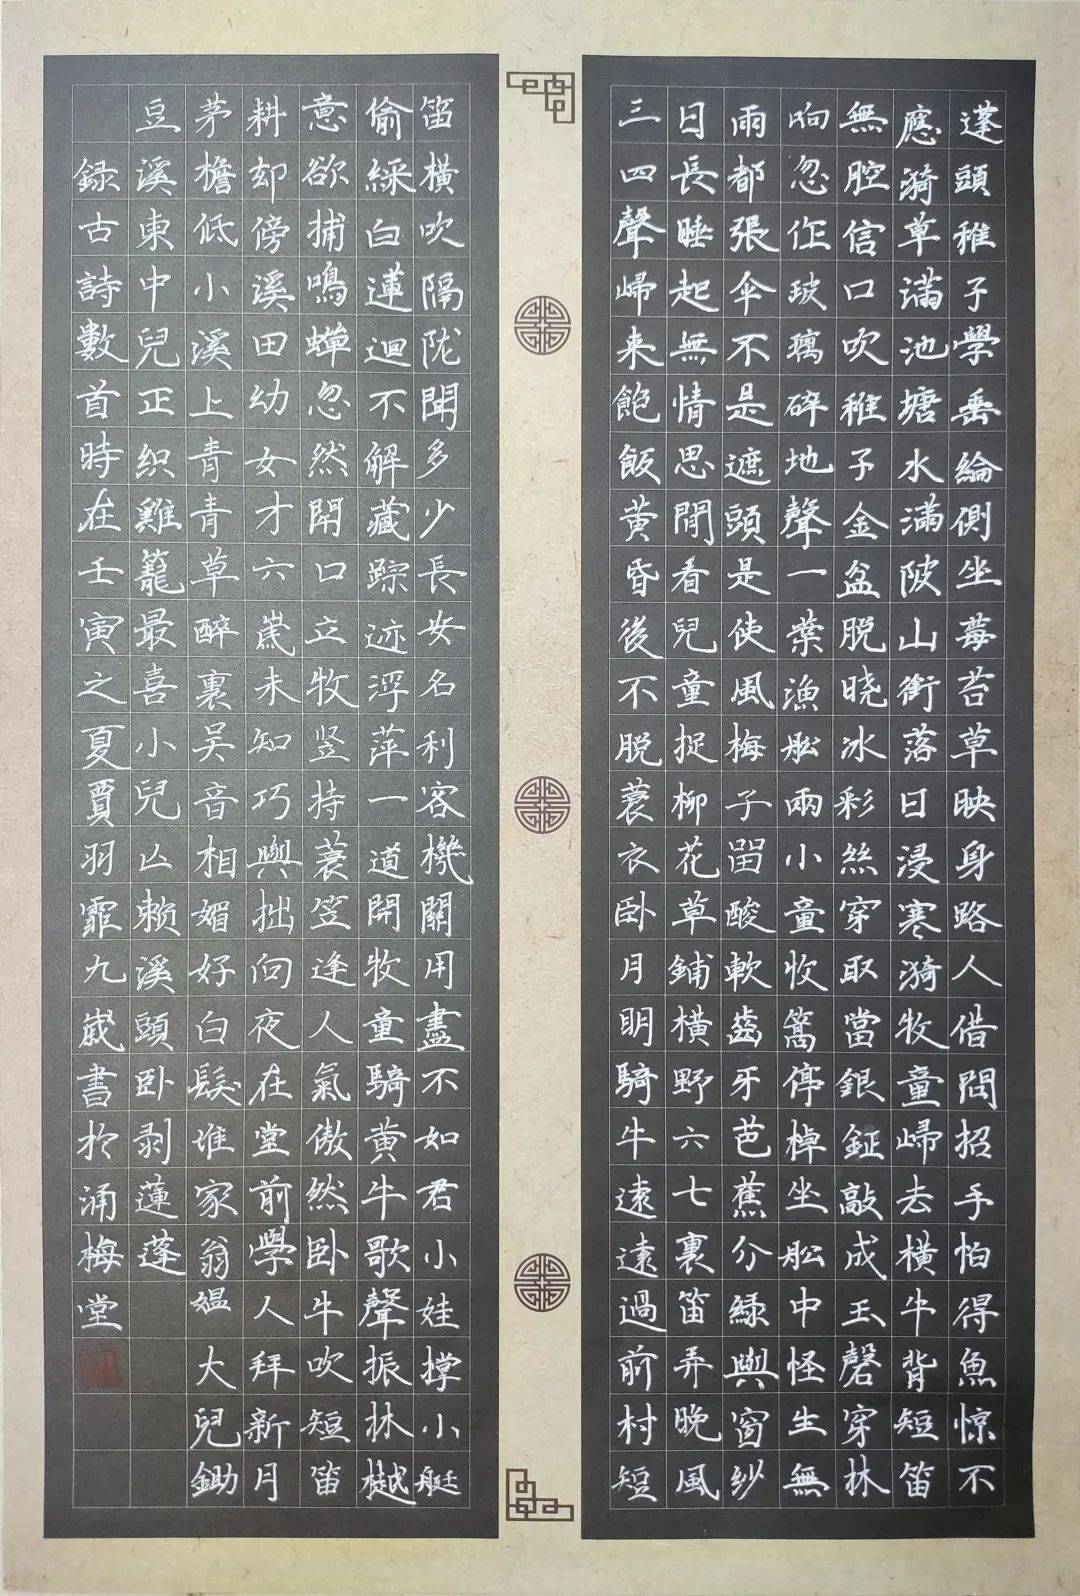 蓬頭稚子學垂綸側坐莓苔草映身路人借問招手怕得魚惊不
應漪草滿池塘水滿陂山銜落日浸寒漪牧童歸去橫牛背短笛
無腔信口吹稚子金盆脱晓冰彩絲穿取當銀鉦敲成玉磬穿林
响忽作玻璃碎地聲一葉漁船兩小童收篙停棹坐船中怪生無
雨都張伞不是遮頭是使風梅子留酸軟齒牙芭蕉分緑與窗紗
日長睡起無情思閒看兒童捉柳花草鋪橫野六七裏笛弄晚風
三四聲歸来飽飯黄昏後不脱蓑衣卧月明騎牛遠遠過前村短
笛橫吹隔陇聞多少長安名利客機關用盡不如君小娃撑小艇
偷綵白蓮迴不解藏踪迹浮萍一道開牧童騎黄牛歌聲振林樾
意欲捕鳴蟬忽然閉口立牧竖持蓑笠逢人氣傲然卧牛吹短笛
耕却傍溪田幼女才六歲未知巧與拙向夜在堂前學人拜新月
茅檐低小溪上青青草醉裏吴音相媚好白髮谁家翁媪大兒鋤
豆溪東中兒正织雞籠最喜小兒亡赖溪頭卧剥蓮蓬
録古詩數首時在壬寅之夏賈羽霏九歲書於涌梅堂